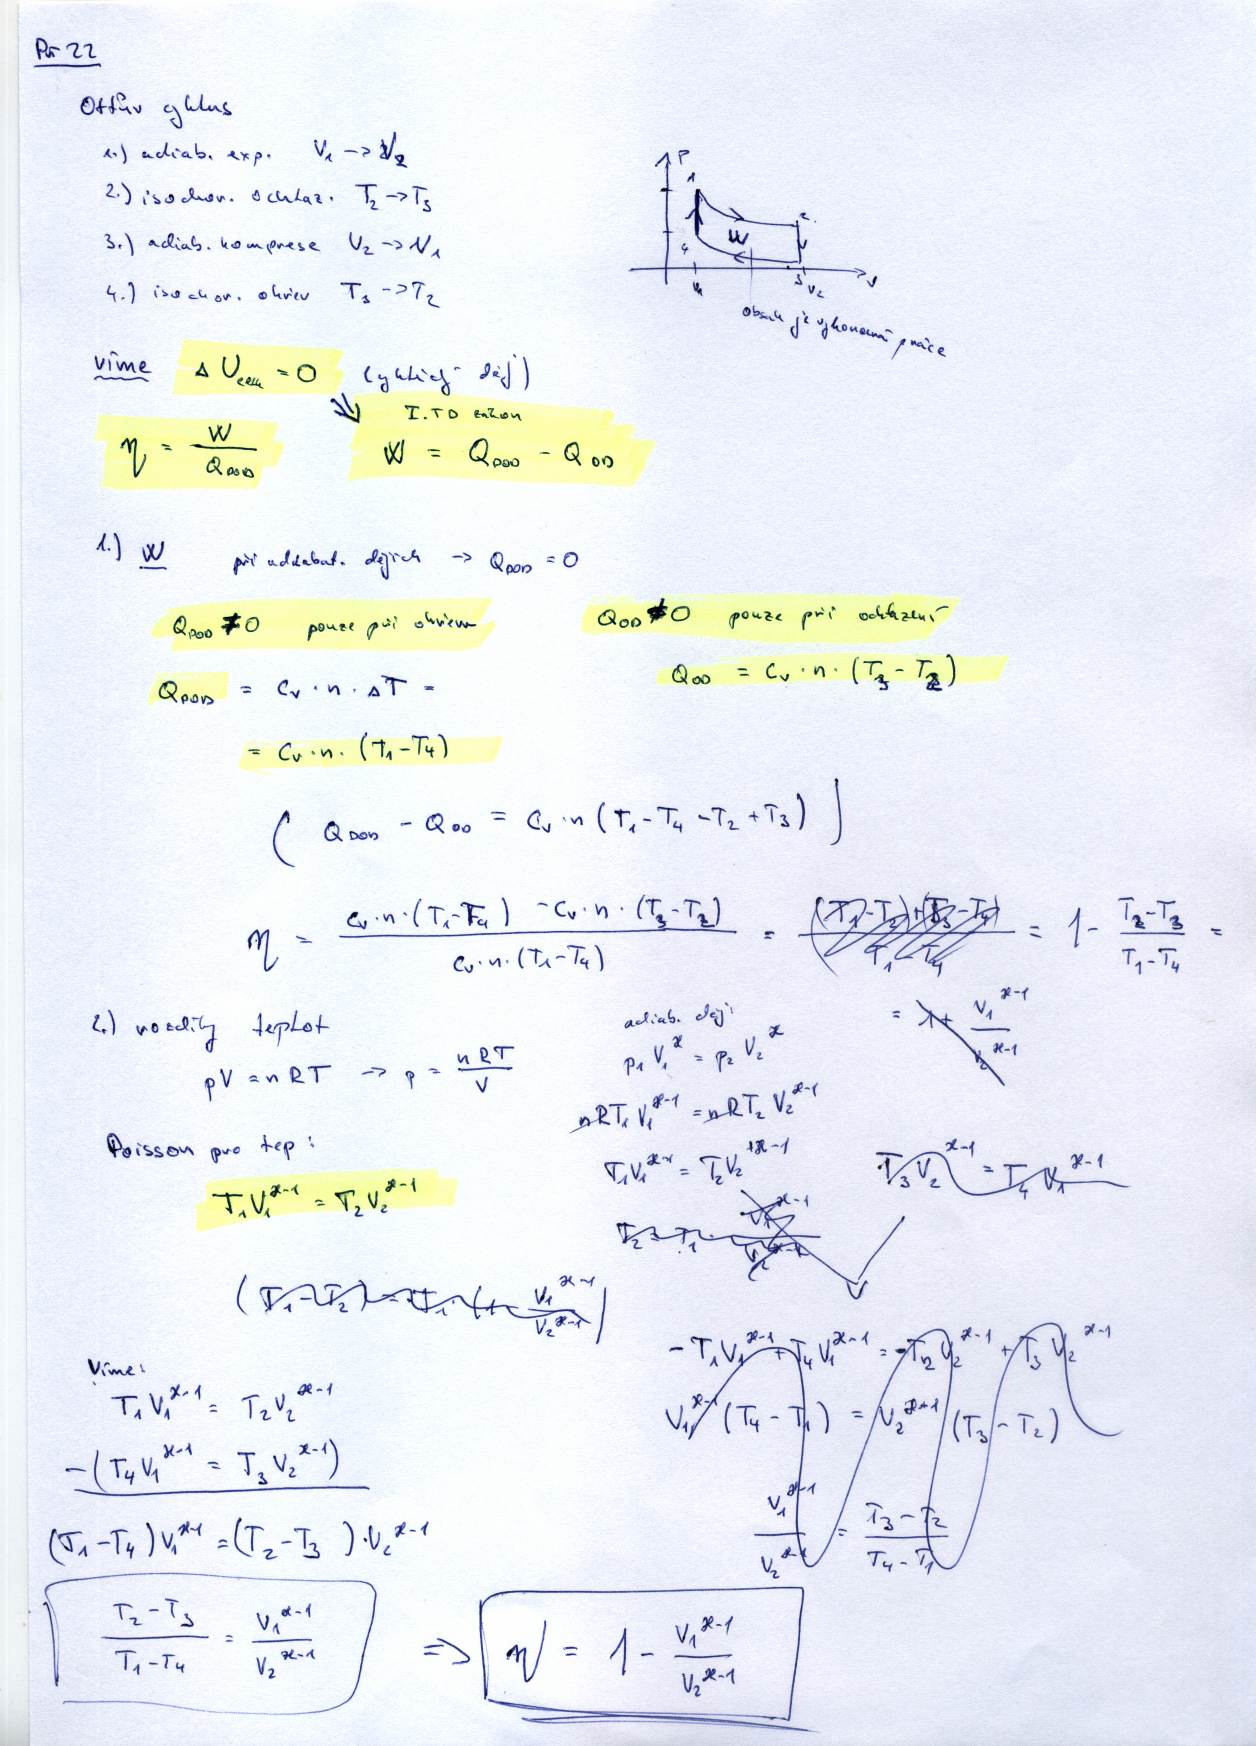 Př 22
Ottův cyklus
1.) adiab. exp. V₁ → V₂
2.) isochor. ochlaz. T₂ → T₃
3.) adiab. komprese V₂ → V₁
4.) isochor. ohřev T₃ → T₂
P
1
2.
W
4
3
V₁
V₂
V
obsah je vykonaná práce
víme ΔU_celk = 0 (cyklický děj)
I. TD zákon
η = W / Q_DOD
W = Q_DOD - Q_OD
1.) W při adiabat. dějích → Q_DOD = 0
Q_DOD ≠ 0 pouze při ohřevu
Q_OD ≠ 0 pouze při ochlazení
Q_OD = C_v · n · (T₃ - T₂)
Q_DOD = C_v · n · ΔT =
= C_v · n · (T₁ - T₄)
(Q_DOD - Q_OD = C_v · n (T₁ - T₄ - T₂ + T₃))
η = (C_v · n · (T₁ - T₄) - C_v · n · (T₃ - T₂)) / (C_v · n · (T₁ - T₄)) = ((T₁ - T₂) + (T₃ - T₄)) / (T₁ - T₄) = 1 - (T₂ - T₃) / (T₁ - T₄) =
= 1 + V₁^ϰ⁻¹ / V₂^ϰ⁻¹
2.) rozdíly teplot
pV = nRT → p = nRT / V
adiab. děj:
p₁V₁^ϰ = p₂V₂^ϰ
nRT₁V₁^ϰ⁻¹ = nRT₂V₂^ϰ⁻¹
T₁V₁^ϰ⁻¹ = T₂V₂^ϰ⁻¹
T₃V₂^ϰ⁻¹ = T₄V₁^ϰ⁻¹
T₂ = T₁ · V₁^ϰ⁻¹ / V₂^ϰ⁻¹
Poisson pro tep:
T₁V₁^ϰ⁻¹ = T₂V₂^ϰ⁻¹
(T₁ - T₂) = T₁ · (1 - V₁^ϰ⁻¹ / V₂^ϰ⁻¹)
-T₁V₁^ϰ⁻¹ + T₄V₁^ϰ⁻¹ = -T₂V₂^ϰ⁻¹ + T₃V₂^ϰ⁻¹
V₁^ϰ⁻¹ (T₄ - T₁) = V₂^ϰ⁻¹ (T₃ - T₂)
V₁^ϰ⁻¹ / V₂^ϰ⁻¹ = (T₃ - T₂) / (T₄ - T₁)
Víme:
T₁V₁^ϰ⁻¹ = T₂V₂^ϰ⁻¹
-(T₄V₁^ϰ⁻¹ = T₃V₂^ϰ⁻¹)
(T₁ - T₄)V₁^ϰ⁻¹ = (T₂ - T₃) · V₂^ϰ⁻¹
(T₂ - T₃) / (T₁ - T₄) = V₁^ϰ⁻¹ / V₂^ϰ⁻¹ ⇒ η = 1 - V₁^ϰ⁻¹ / V₂^ϰ⁻¹